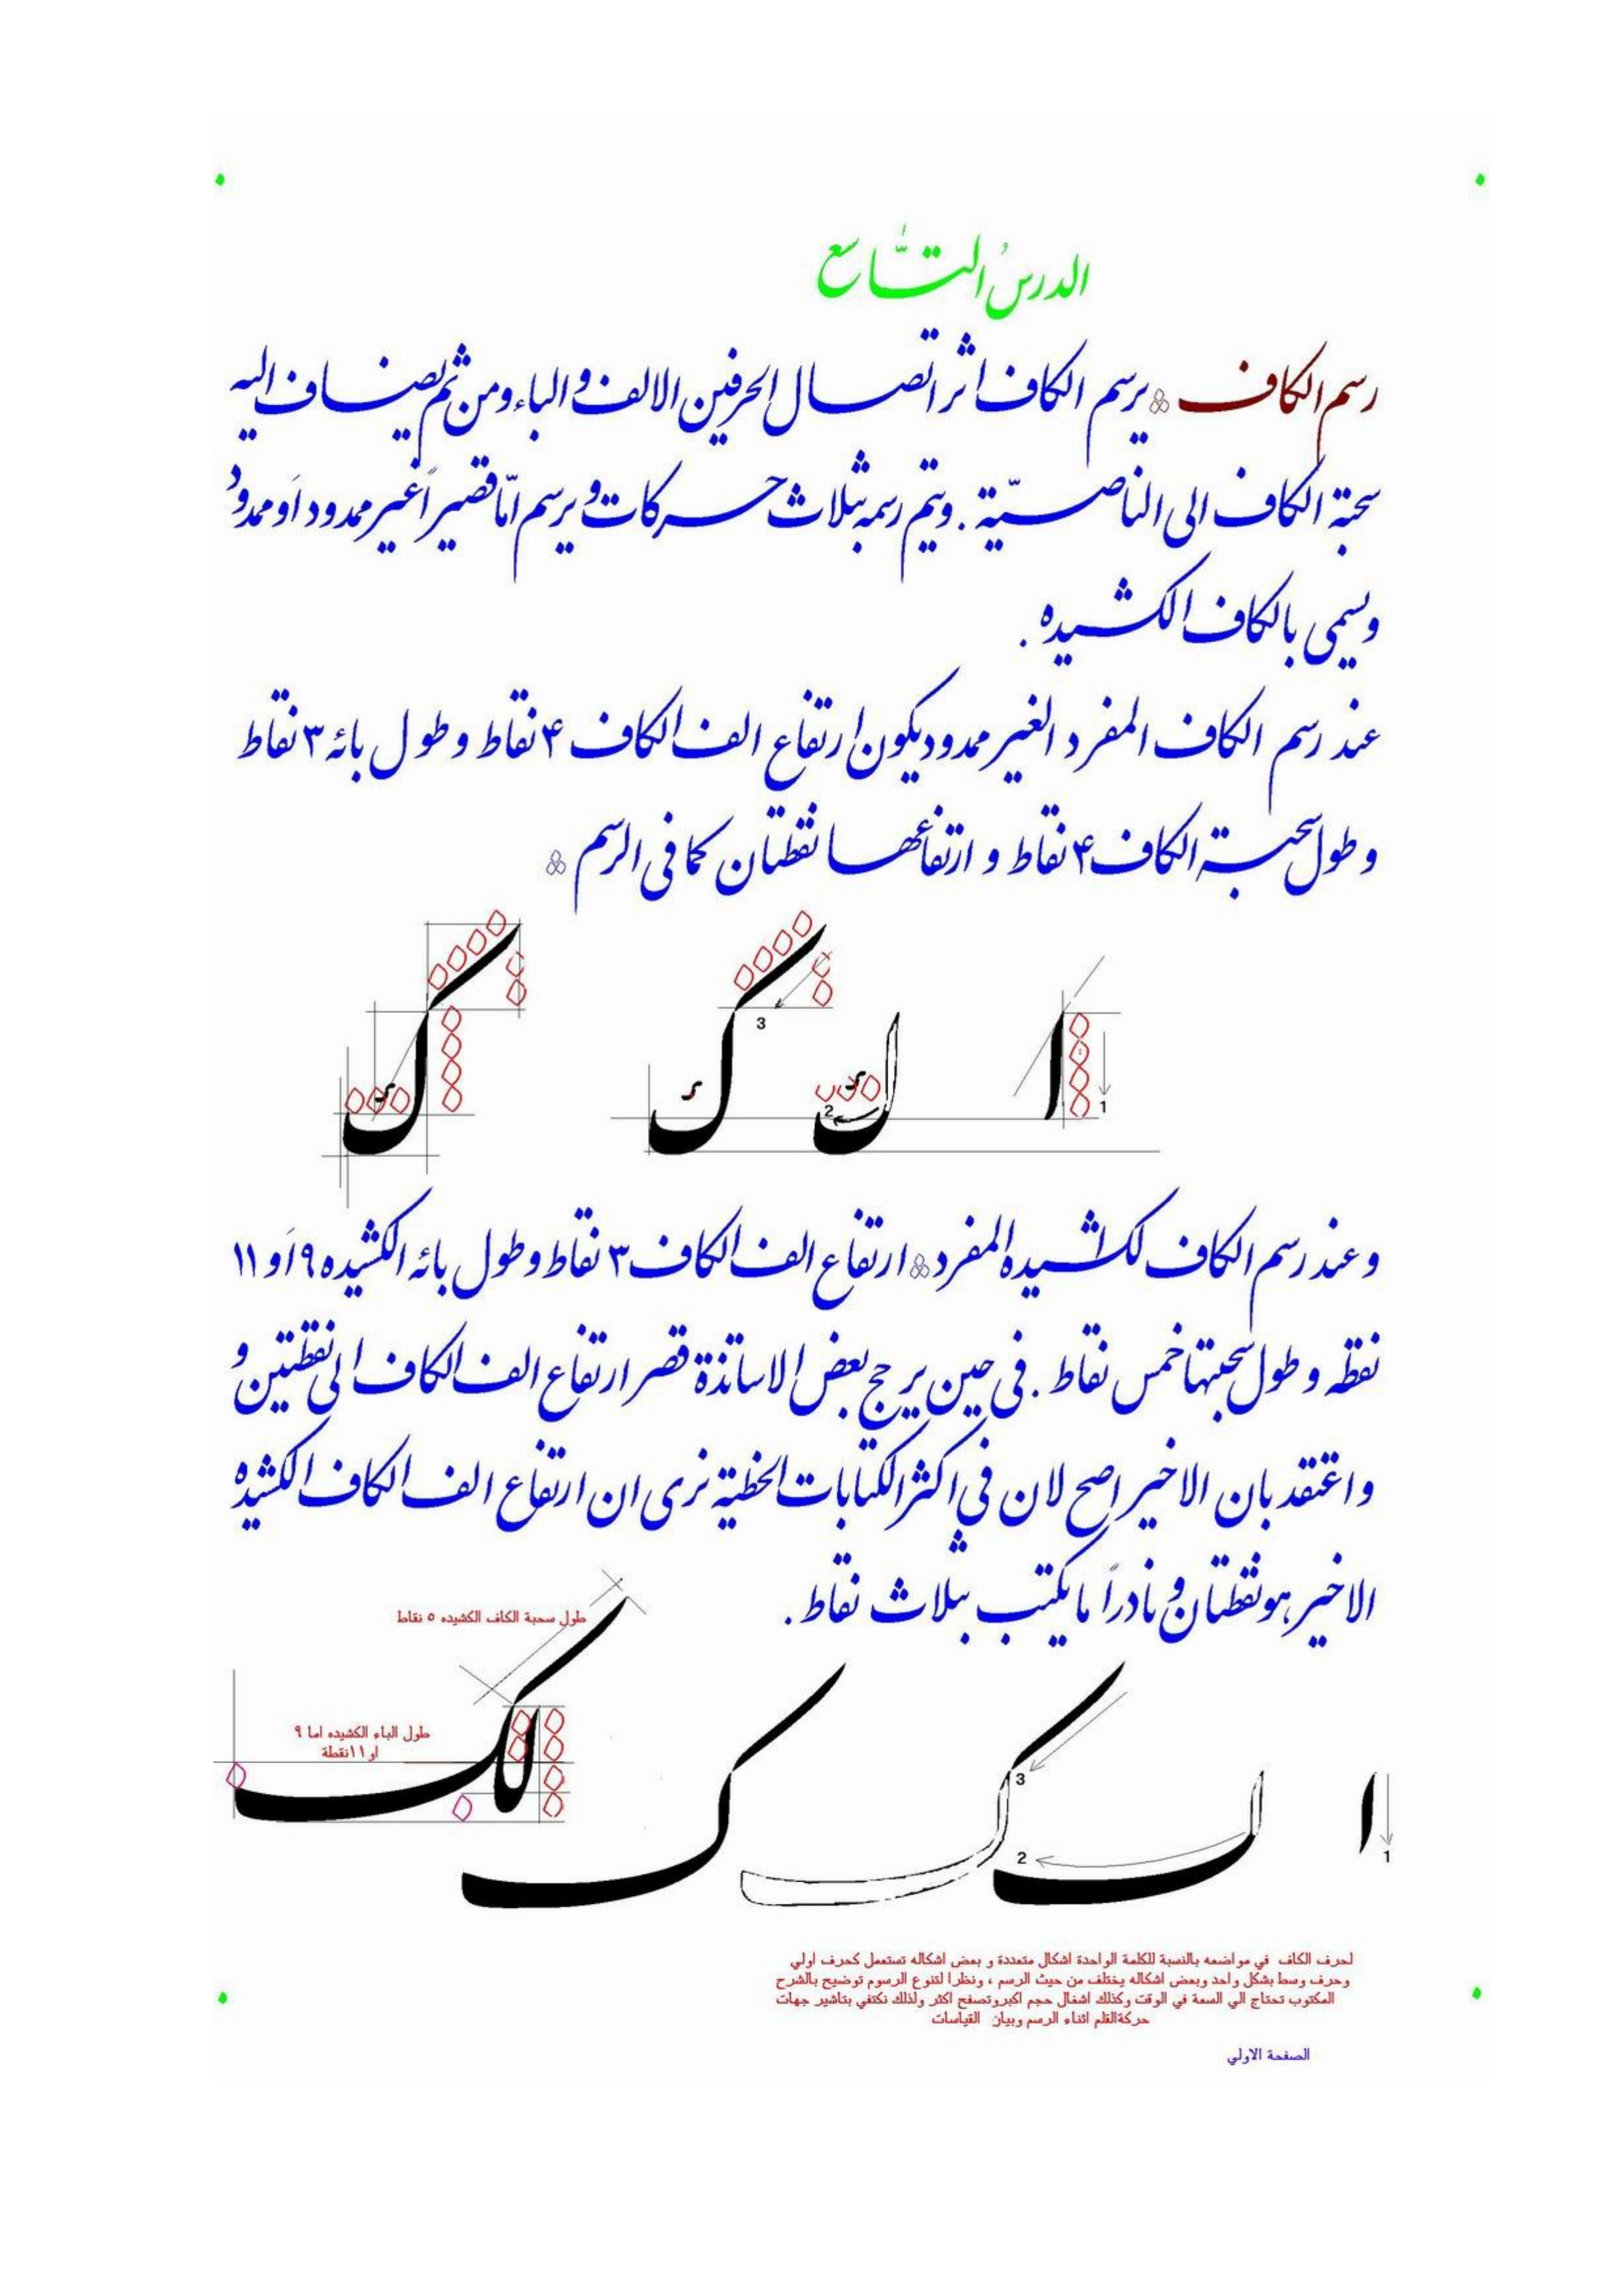 الدرسُ التَّاسع
رسم الكاف ۞ يرسم الكاف اثر اتصال الحرفين الالف والباء ومن ثم يضاف اليه
سحبة الكاف الى الناصيّة . ويتم رسمه بثلاث حركات ويرسم امّا قصيراً غير ممدود اَو ممدود
ويسمى بالكاف الكشيده .
عند رسم الكاف المفرد الغير ممدود يكون ارتفاع الف الكاف ۴ نقاط وطول بائه ٣ نقاط
وطول سحبة الكاف ۴ نقاط و ارتفاعها نقطتان كما في الرسم ۞
3
2
1
وعند رسم الكاف لكشيده المفرد ۞ ارتفاع الف الكاف ٣ نقاط وطول بائه الكشيده ٩ اَو ١١
نقطه وطول سحبتها خمس نقاط . في حين يرجح بعض الاساتذة قصر ارتفاع الف الكاف الى نقطتين و
واعتقد بان الاخير اصح لان في اكثر الكتابات الخطية نرى ان ارتفاع الف الكاف الكشيده
الاخير هو نقطتان ونادراً ما يكتب بثلاث نقاط .
طول سحبة الكاف الكشيده ٥ نقاط
طول الباء الكشيده اما ٩
او ١١نقطة
3
2
1
لحرف الكاف في مواضعه بالنسبة للكلمة الواحدة اشكال متعددة و بعض اشكاله تستعمل كحرف اولي
وحرف وسط بشكل واحد وبعض اشكاله يختلف من حيث الرسم ، ونظرا لتنوع الرسوم توضيح بالشرح
المكتوب تحتاج الي السعة في الوقت وكذلك اشغال حجم اكبروتصفح اكثر ولذلك نكتفي بتاشير جهات
حركةالقلم اثناء الرسم وبيان القياسات
الصفحة الاولي